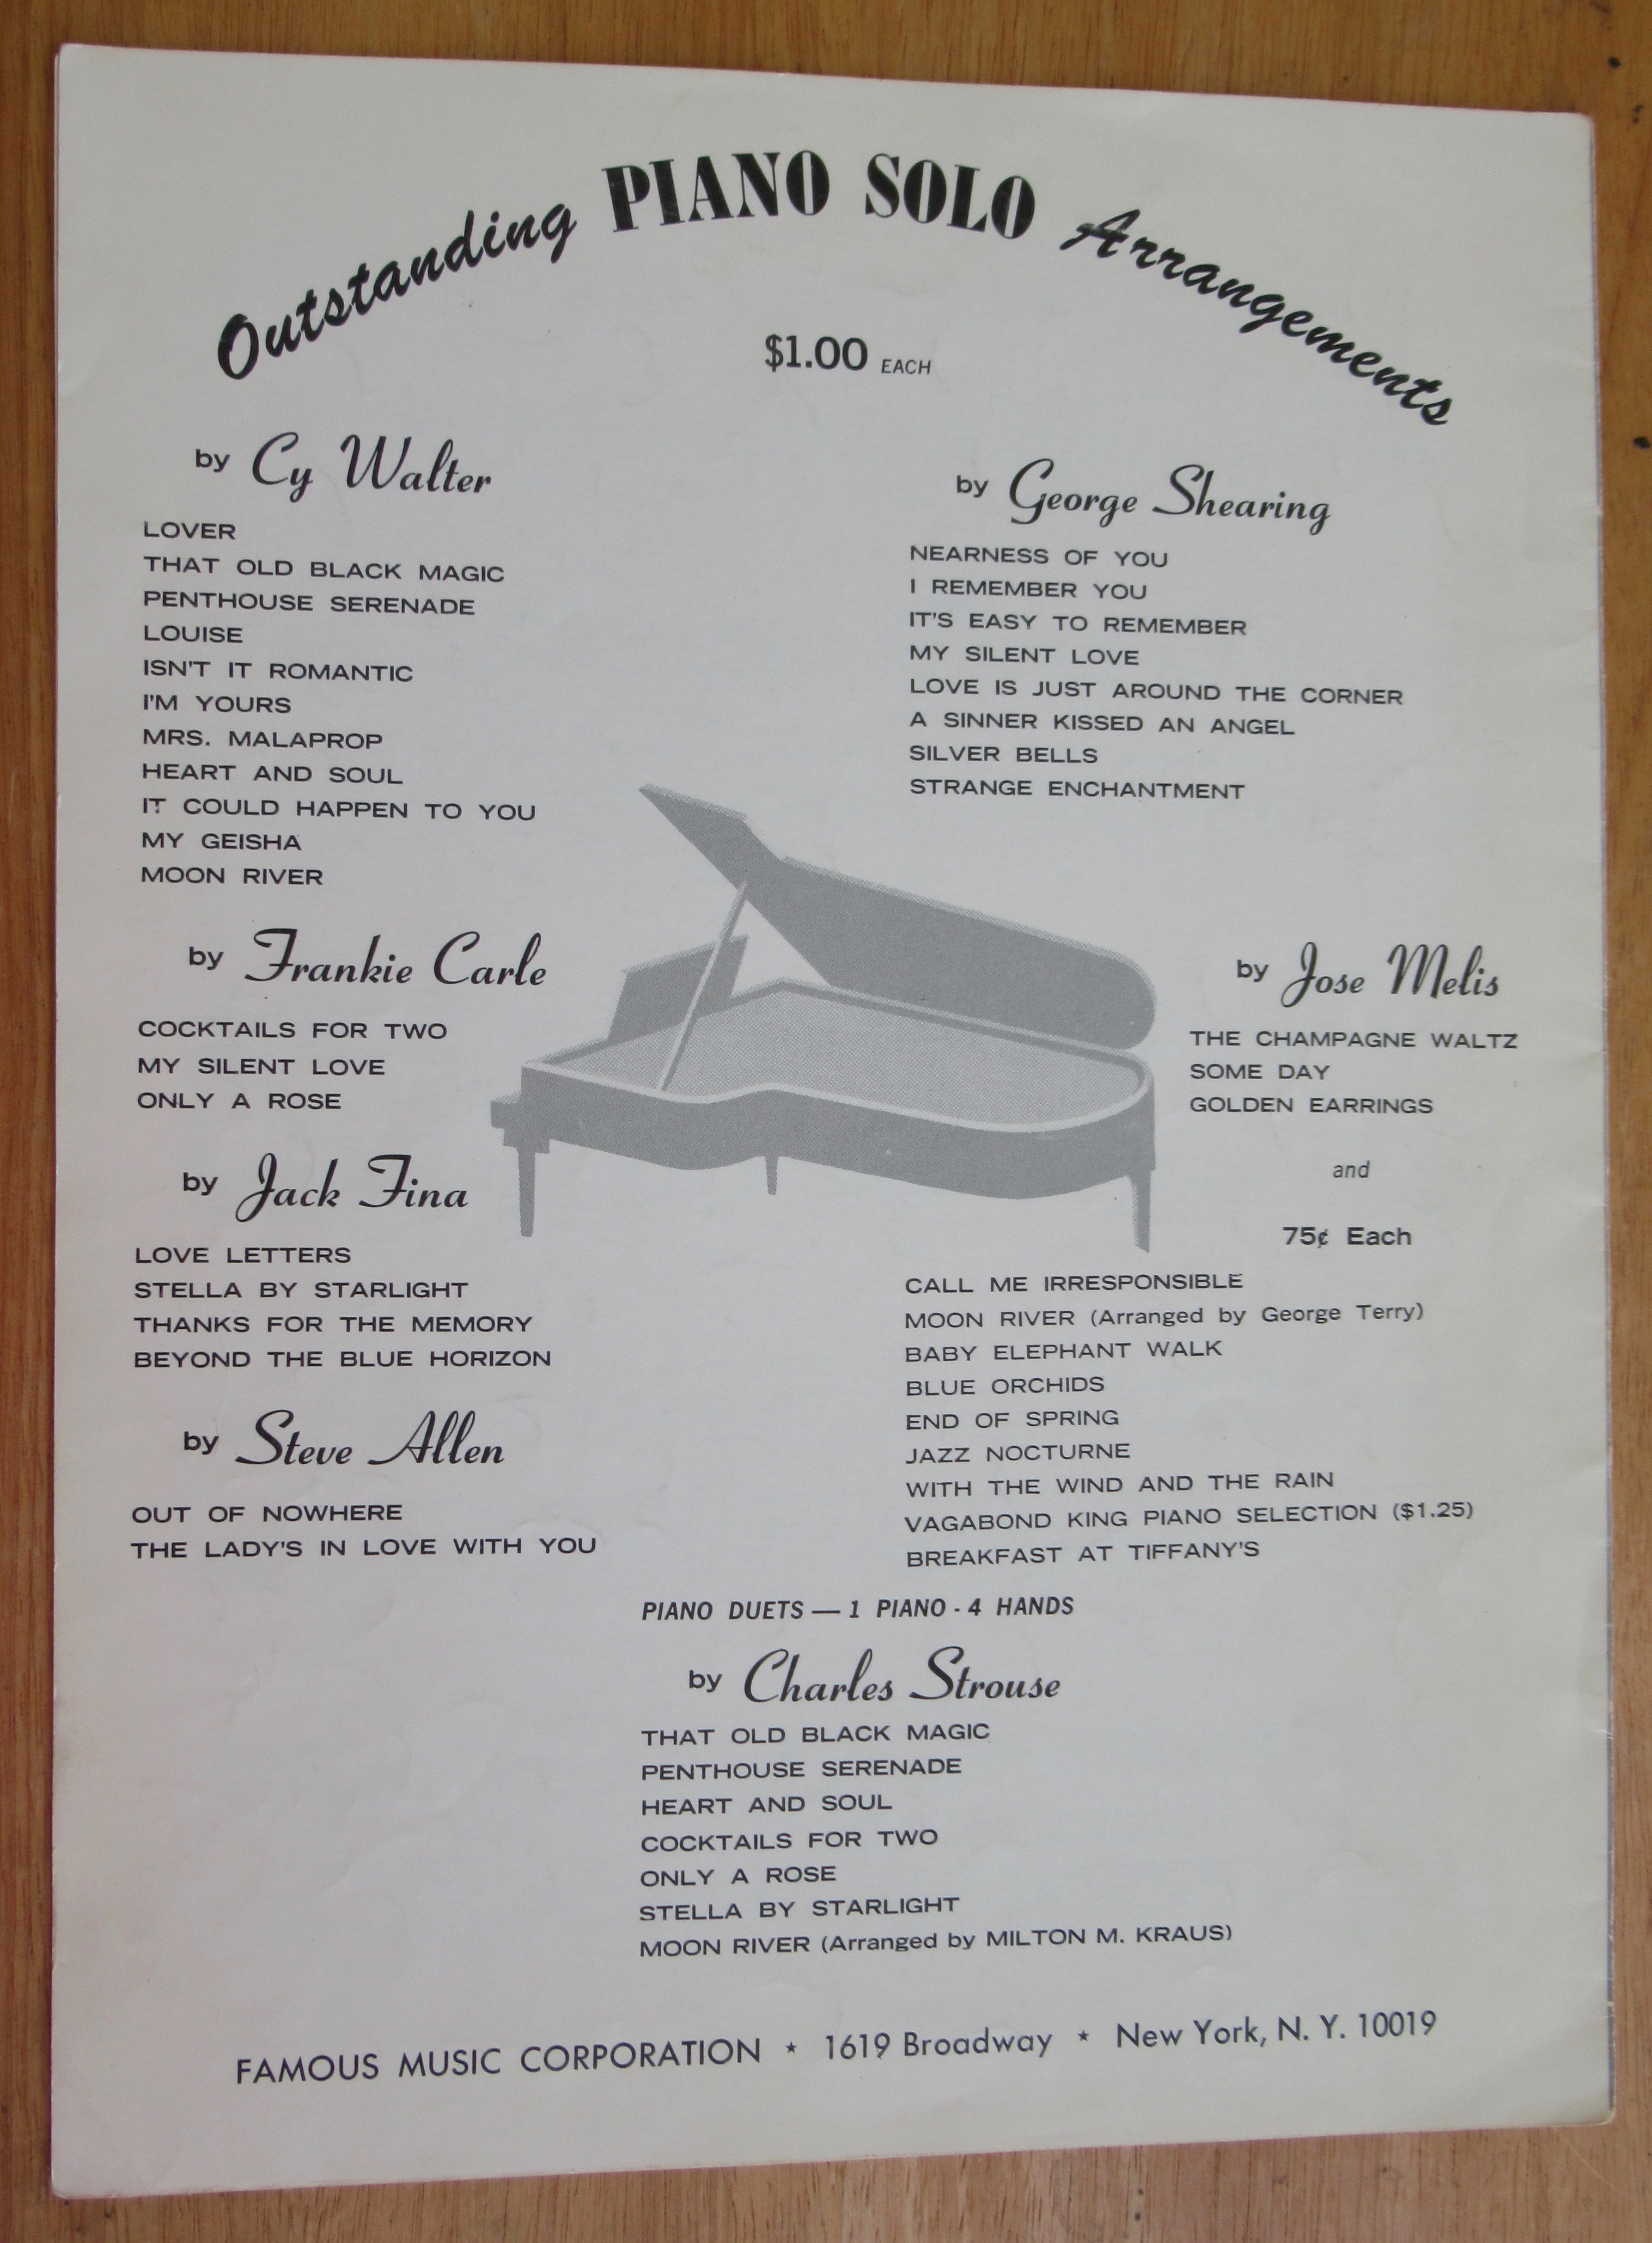 Outstanding PIANO SOLO Arrangements
$1.00 EACH
by Cy Walter
LOVER
THAT OLD BLACK MAGIC
PENTHOUSE SERENADE
LOUISE
ISN'T IT ROMANTIC
I'M YOURS
MRS. MALAPROP
HEART AND SOUL
IT COULD HAPPEN TO YOU
MY GEISHA
MOON RIVER
by Frankie Carle
COCKTAILS FOR TWO
MY SILENT LOVE
ONLY A ROSE
by Jack Fina
LOVE LETTERS
STELLA BY STARLIGHT
THANKS FOR THE MEMORY
BEYOND THE BLUE HORIZON
by Steve Allen
OUT OF NOWHERE
THE LADY'S IN LOVE WITH YOU
by George Shearing
NEARNESS OF YOU
I REMEMBER YOU
IT'S EASY TO REMEMBER
MY SILENT LOVE
LOVE IS JUST AROUND THE CORNER
A SINNER KISSED AN ANGEL
SILVER BELLS
STRANGE ENCHANTMENT
by Jose Melis
THE CHAMPAGNE WALTZ
SOME DAY
GOLDEN EARRINGS
and
75¢ Each
CALL ME IRRESPONSIBLE
MOON RIVER (Arranged by George Terry)
BABY ELEPHANT WALK
BLUE ORCHIDS
END OF SPRING
JAZZ NOCTURNE
WITH THE WIND AND THE RAIN
VAGABOND KING PIANO SELECTION ($1.25)
BREAKFAST AT TIFFANY'S
PIANO DUETS — 1 PIANO - 4 HANDS
by Charles Strouse
THAT OLD BLACK MAGIC
PENTHOUSE SERENADE
HEART AND SOUL
COCKTAILS FOR TWO
ONLY A ROSE
STELLA BY STARLIGHT
MOON RIVER (Arranged by MILTON M. KRAUS)
FAMOUS MUSIC CORPORATION ★ 1619 Broadway ★ New York, N. Y. 10019